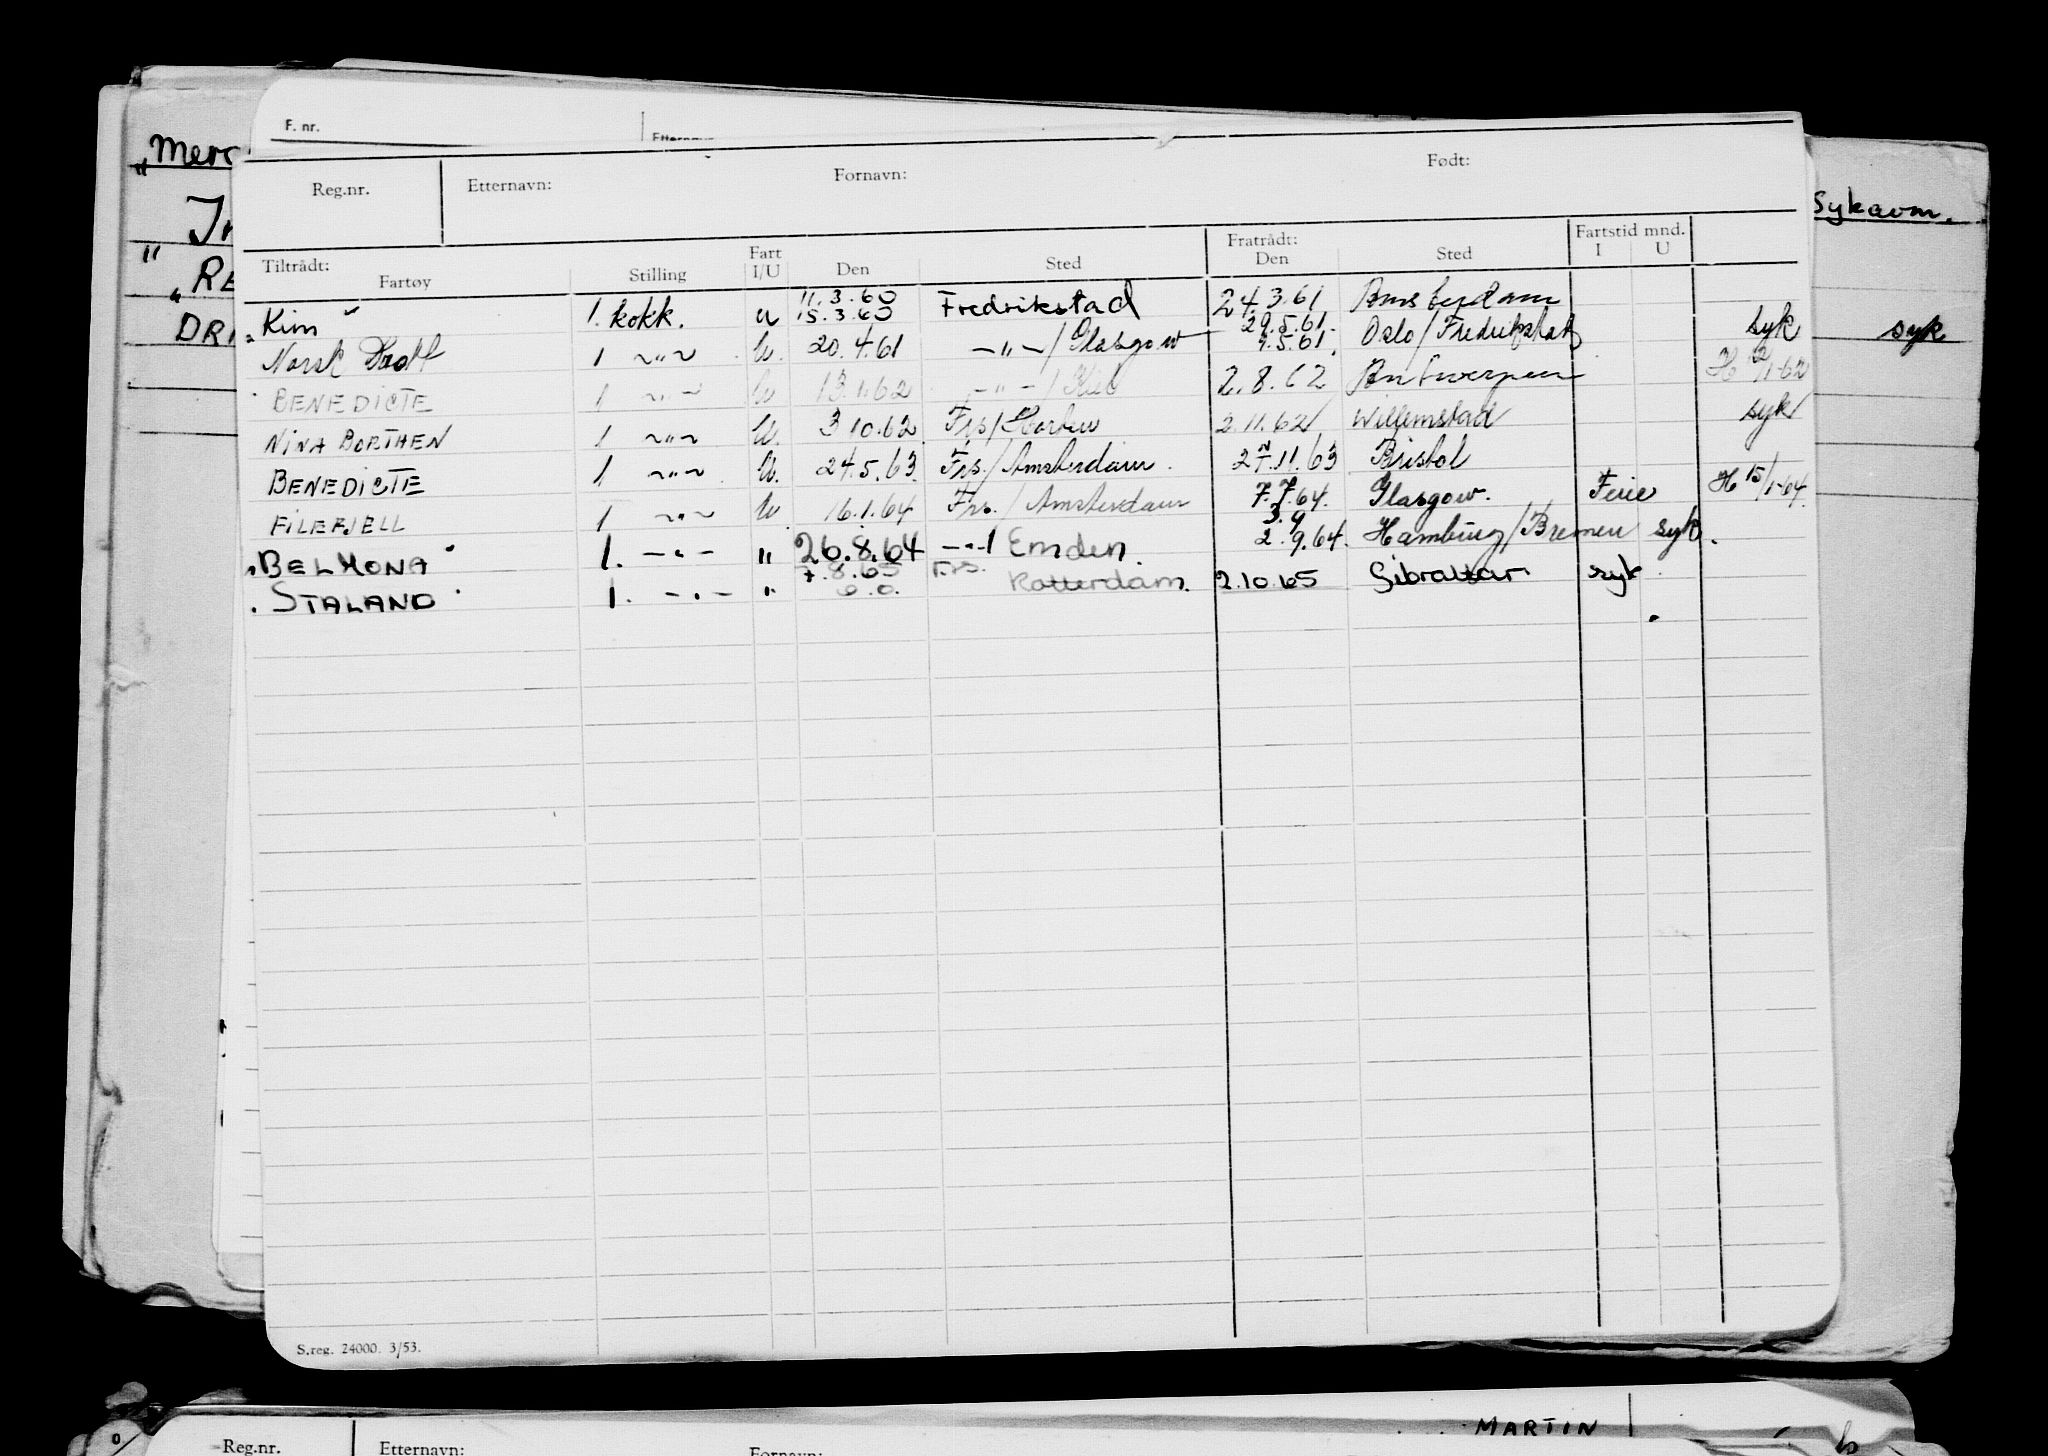 F. nr.
Etternavn
„Merc
Reg.nr. Etternavn: Fornavn: Født:
Sykavm.
"
„RE
DRI
Tiltrådt: Fratrådt: Fartstid mnd.
Fartøy Stilling Fart I/U Den Sted Den Sted I U
11.3.60
„Kim" 1. kokk. U 15.3.60 Fredrikstad 24.3.61 Amsterdam
29.5.61
Norsk Drott 1 ~"~ U. 20.4.61 -"-/Glasgow 9.5.61 Oslo/Fredrikstad syk syk
BENEDICTE 1 ~"~ U 13.1.62 -"-/Kiel 2.8.62 Antwerpen H 12/1-62
NINA BORTHEN 1 ~"~ U. 3.10.62 Frs/ 2.11.62 Willemstad syk
BENEDICTE 1 ~"~ U. 24.5.63 Frs./Amsterdam. 27.11.63 Bristol
FILEFJELL 1 ~"~ U. 16.1.64 Frs./Amsterdam 7.7.64. Glasgow. Ferie H 15/1-64
3.9
„BELMONA" 1. -"- " 26.8.64 -"-/Emden. 2.9.64. Hamburg/Bremen syk.
7.8.65 Frs.
"STALAND" 1. -"- " Rotterdam. 2.10.65 Gibraltar syk
S.reg. 24000. 3/53.
MARTIN
Reg.nr. Etternavn: Fornavn: